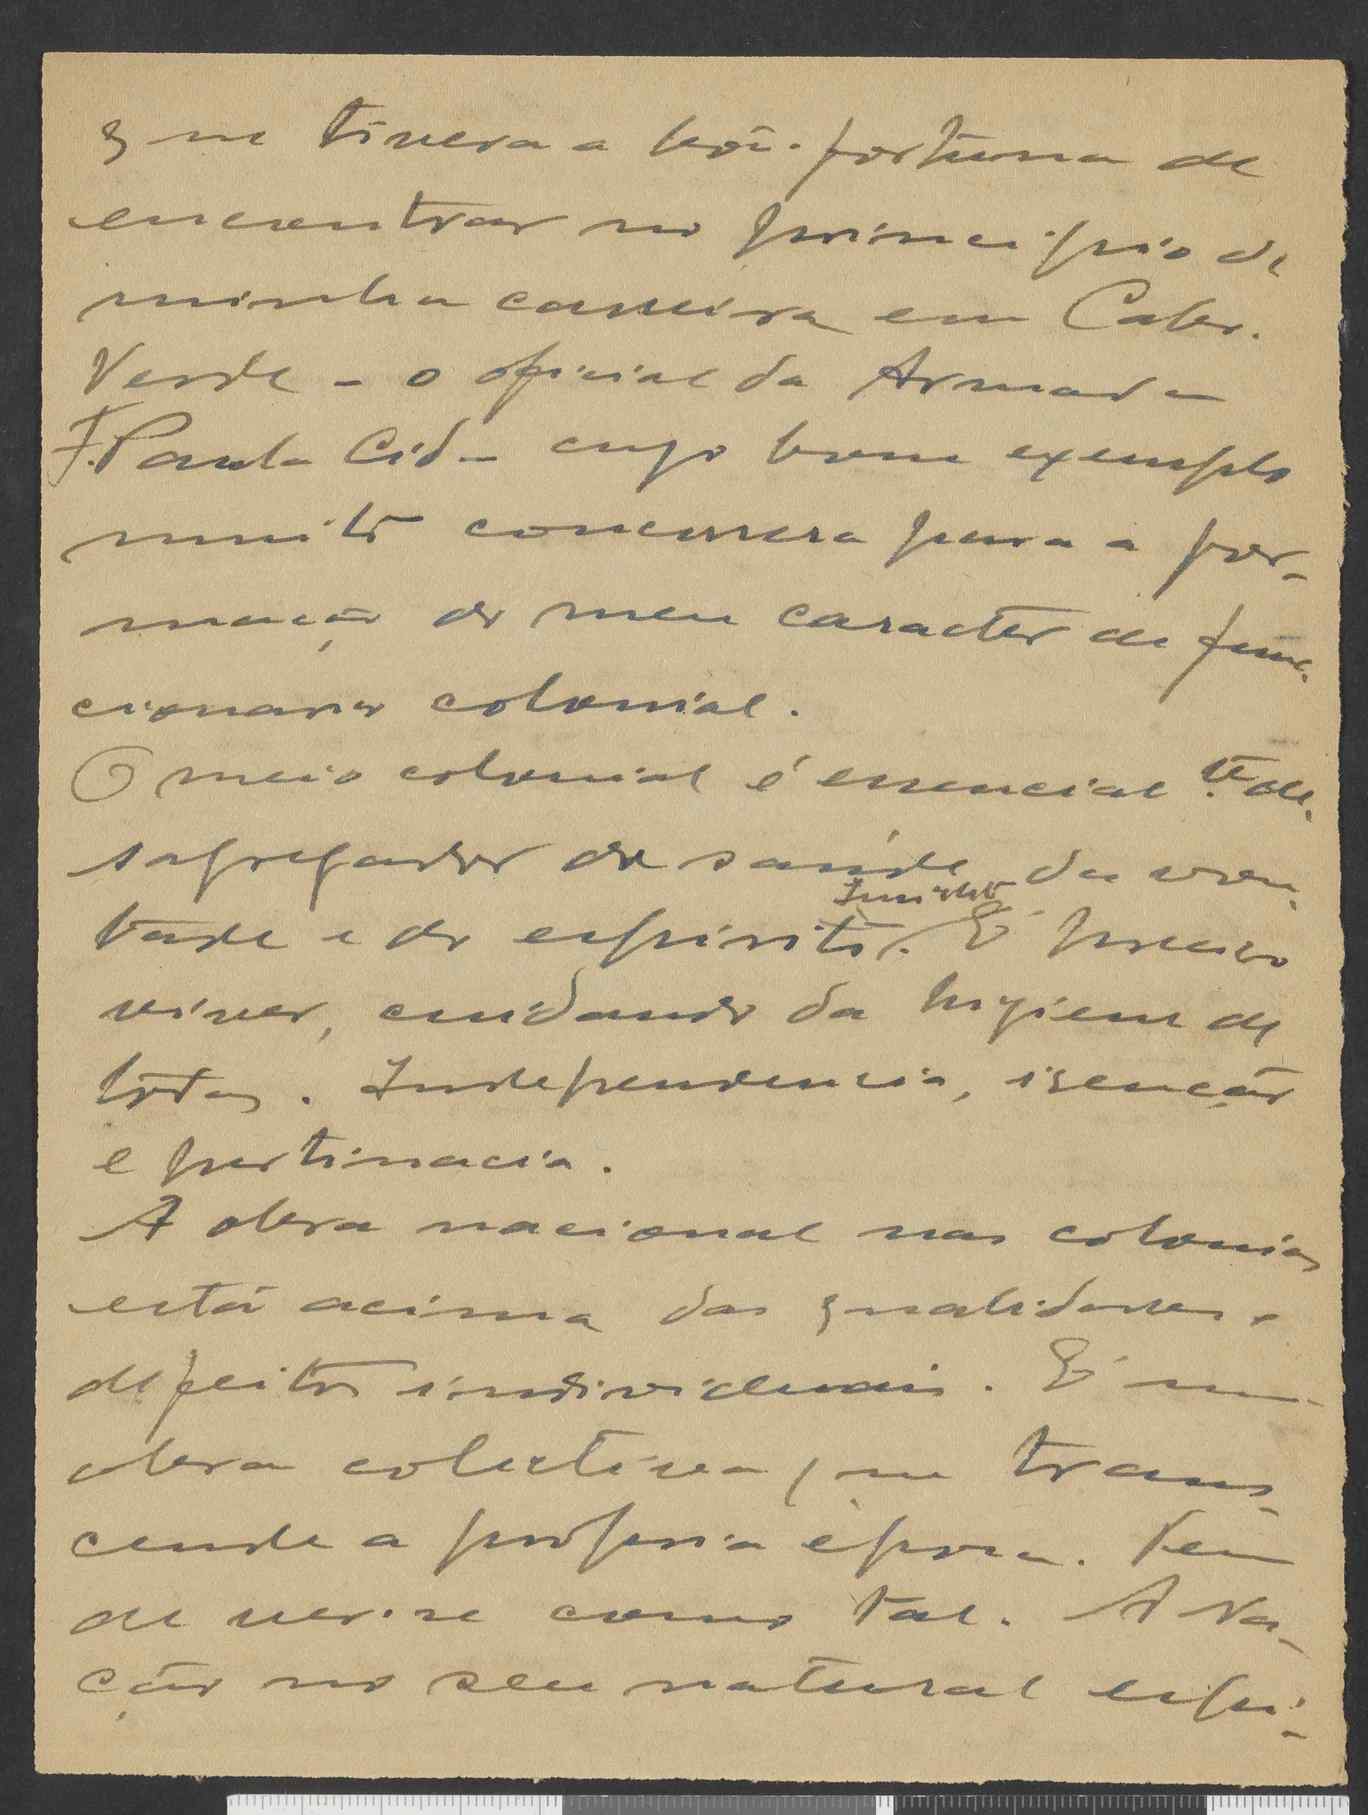 que tivera a bôa fortuna de
encontrar no principio de
minha carreira em Cabo
Verde - o oficial da Armada
F. Paula Cid - cujo bom exemplo
muito concorrera para a for-
mação do meu caracter de func-
cionario colonial.
O meio colonial é essencial.te de-
sagregador da saúde, da von-
tade e do espirito. É preciso
viver, cuidando da higiene de
todos. Independencia, isenção
e pertinacia.
A obra nacional nas colonias
está acima das qualidades e
defeitos individuais. É uma
obra colectiva, que trans-
cende a propria época. Tem
de ver-se como tal. A Na-
ção no seu natural espi-